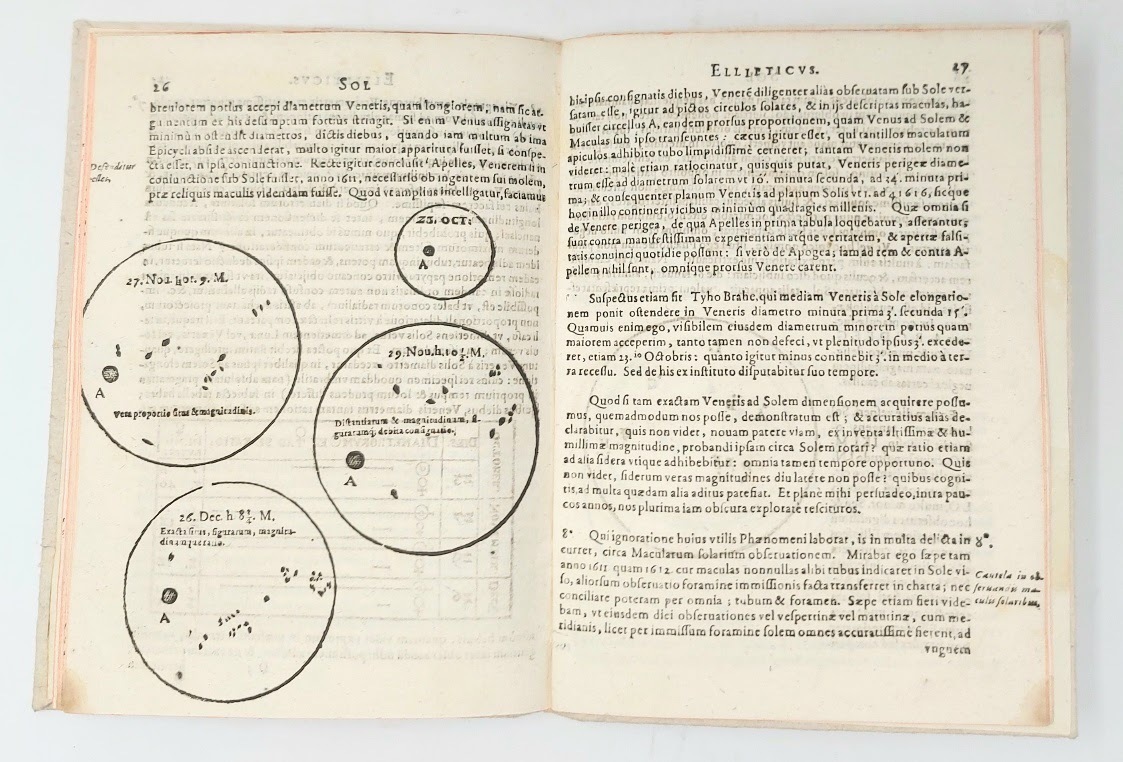 26 SOL
breuiorem potius accepi diametrum Veneris, quam longiorem, nam sic ar-
gumentum et his desumptum fortius stringit. Si enim Venus assignatas vt
minimùm ostendit diametros, dictis diebus, quando iam multum ab ima
Epicycli abside ascenderat, multo igitur maior apparitura fuisset, si conspe-
cta esset, in ipsa coniunctione. Recte igitur conclusit Apelles, Venerem si in
coniunctione sub Sole fuisset, anno 1611, necessariò ob ingentem sui molem,
præ reliquis maculis videndam fuisse. Quod vt amplius intelligatur, faciamus
Defenditur
23. OCT:
A
27. Nou. hor. 9. M.
A
Vera proportio situs & magnitudinis.
29. Nou. h. 10 ½. M.
Distantiarum & magnitudinum, fi-
gurarumq; debita consignatio.
A
26. Dec. h 8 ¾. M.
Exacta situs, figurarum, magnitu-
dinumque ratio.
A
ELLIPTICVS. 27
his ipsis consignatis diebus, Venerē diligenter alias obseruatam sub Sole ver-
satam esse, igitur ad pictos circulos solares, & in ijs descriptas maculas, ha-
buisset circellus A, eandem prorsus proportionem, quam Venus ad Solem &
Maculas sub ipso transeuntes: cæcus igitur esset, qui tantillos macularum
apiculos adhibito tubo limpidissimè cerneret; tantam Veneris molem non
videret: malè etiam ratiocinatur, quisquis putat, Veneris perigeæ diame-
trum esse ad diametrum solarem vt 10. minuta secunda, ad 34. minuta pri-
ma; & consequenter planum Veneris ad planum Solis vt 1. ad 41616, sicque
hoc in illo contineri vicibus minimùm quadragies millenis. Quæ omnia si
de Venere perigea, de qua Apelles in prima tabula loquebatur, asserantur,
sunt contra manifestissimam experientiam atque veritatem, & apertæ falsi-
tatis conuinci quotidie possunt: si verò de Apogea; iam ad rem & contra A-
pellem nihil sunt, omnique prorsus Venere carent.
Suspectus etiam sit Tyho Brahe, qui mediam Veneris à Sole elongatio-
nem ponit ostendere in Veneris diametro minuta prima 3'. secunda 15''.
Quamuis enim ego, visibilem eiusdem diametrum minorem potius quam
maiorem acceperim, tanto tamen non defeci, vt plenitudo ipsius 3'. excede-
ret, etiam 23.io Octobris: quanto igitur minus continebit 3'. in medio à ter-
ra recessu. Sed de his ex instituto disputabitur suo tempore.
Quod si tam exactam Veneris ad Solem dimensionem acquirere possu-
mus, quemadmodum nos posse, demonstratum est; & accuratius alias de-
clarabitur, quis non videt, nouam patere viam, ex inuenta altissimæ & hu-
millimæ magnitudine, probandi ipsam circa Solem rotari? quæ ratio etiam
ad alia sidera vtique adhibebitur: omnia tamen tempore opportuno. Quis
non videt, siderum veras magnitudines diu latere non posse? quibus cogni-
tis, ad multa quædam alia aditus patefiat. Et planè mihi persuadeo, intra pau-
cos annos, nos plurima iam obscura exploratè rescituros.
8. Qui ignoratione huius vtilis Phænomeni laborat, is in multa delicta in
curret, circa Macularum solarium obseruationem. Mirabar ego sæpe tam
anno 1611 quam 1612. cur maculas nonnullas alibi tubus indicaret in Sole vi-
so, aliorsum obseruatio foramine immissionis facta transferret in charta; nec
conciliare poteram per omnia; tubum & foramen. Sæpe etiam fieri vide-
bam, vt eiusdem diei obseruationes vel vespertinæ vel matutinæ, cum me-
ridianis, licet per immissum foramine solem omnes accuratissimè fierent, ad
vnguem
8.
Cautela in ob-
seruanon ma-
culis solaribus.